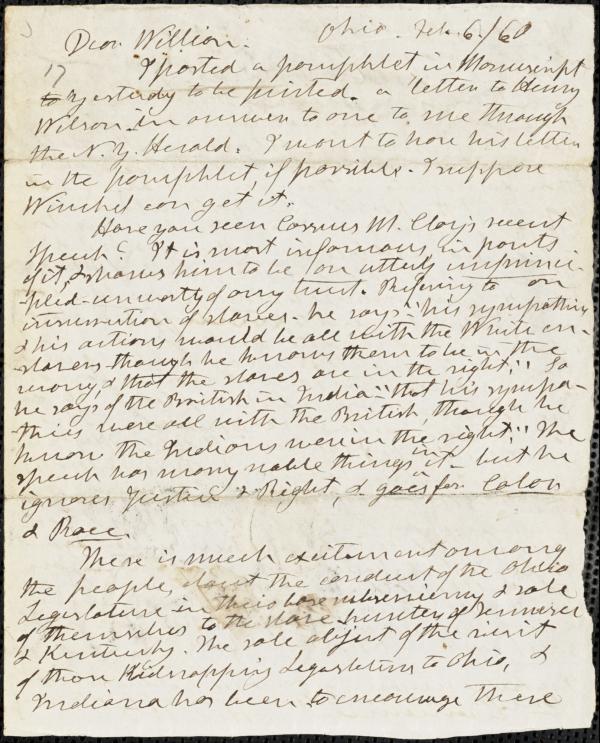 Ohio. Feb. 6./60
Dear William.
I posted a pamphlet in Manuscript
yesterday to be printed. a letter to Henry
Wilson in answer to one to me through
the N. Y. Herald. I want to have his letter
in the pamphlet, if possible. I suppose
Winchel can get it.
Have you seen Cassius M. Clay's recent
Speech? It is most infamous, in parts
of it, & shows him to be an utterly unprinci-
-pled - unworthy of any trust. Refering to an
insurrection of slaves - he says - "his sympathies
& his actions would be all with the White en-
-slavers though he knows them to be in the
wrong, & that the slaves are in the right." So
he says of the British in India - "that his sympa-
-thies were all with the British, though he
know the Indians were in the right." The
speech has many noble things in it - but he
ignores Justice & Right, & goes for Color
& Race.
There is much excitement among
the people, about the conduct of the Ohio
Legislature in their base subserviency & sale
of themselves to the slave hunters of Tennessee
& Kentucky. The sole object of the visit
of those Kidnapping Legislators to Ohio, &
Indiana has been to encourage there